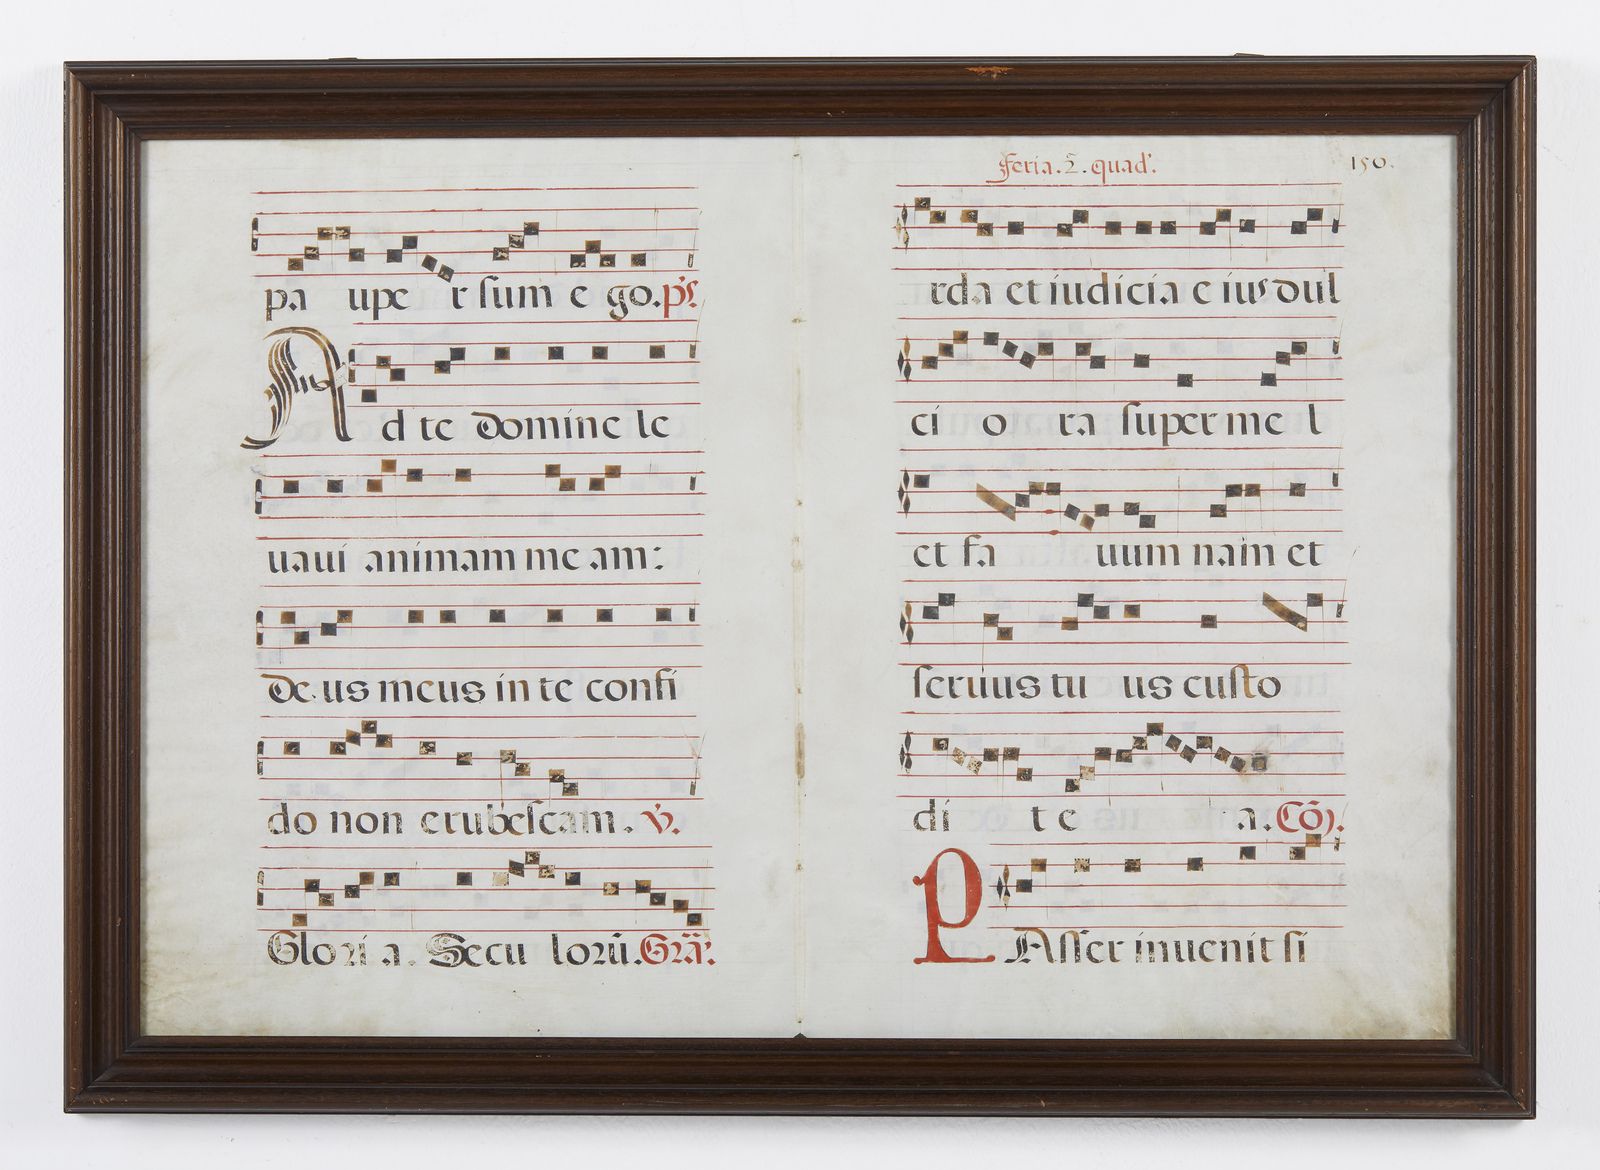 pa upe r sum e go. ps
Ad te domine le
uaui animam me am:
de us meus in te confi
do non erubescam. v.
Glori a. Secu lorū. Grā:
feria. 2. quad'. 150.
rda et iudicia e ius dul
ci o ra super me l
et fa uum nam et
seruus tu us custo
di t e a. Cōj.
PAsser inuenit si